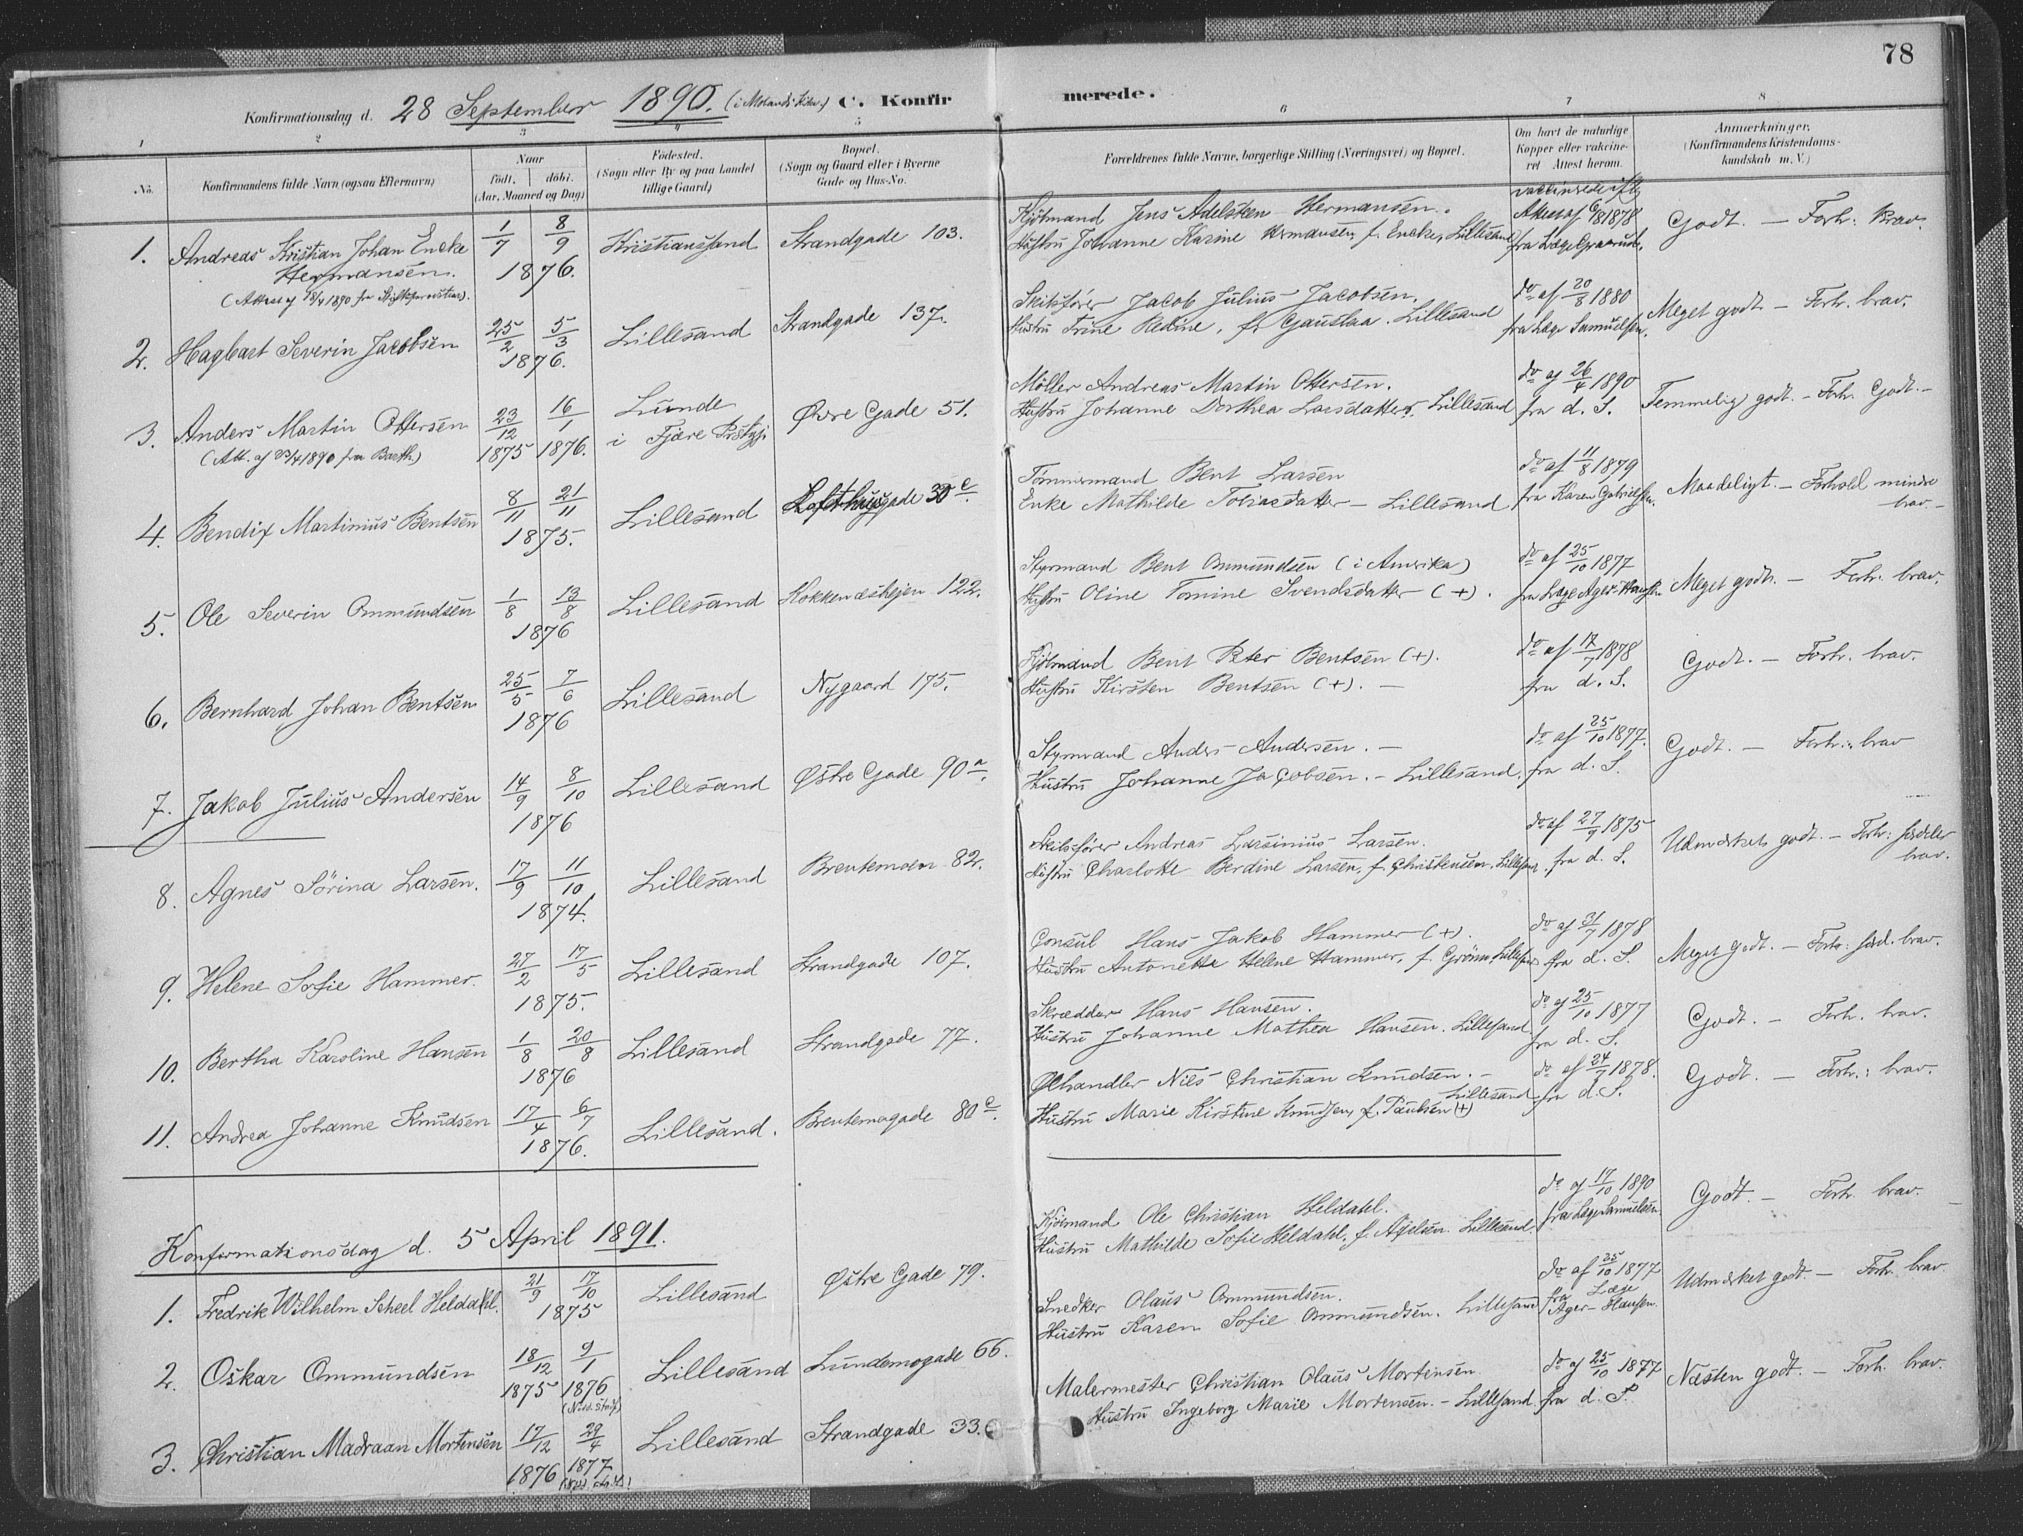 78
Konfirmationsdag d. 28 September 1890. C. Konfirmerede.
1 2 3 4 5 6 7 8
No.
Konfirmandens fulde Navn (ogsaa Efternavn)
Naar
født. døbt.
(Aar, Maaned og Dag)
Fødested.
(Sogn eller By og paa Landet
tillige Gaard)
Bopæl.
(Sogn og Gaard eller i Byerne
Gade og Hus-No.
Forældrenes fulde Navne, borgerlige Stilling (Næringsvei) og Bopæl.
Om havt de naturlige
Kopper eller vakcine-
ret Attest herom.
Anmærkninger.
(Konfirmandens Kristendoms-
kundskab m. V.)
1. Andreas Kristian Johan Encke
Hermansen.
1/7 8/9
1876.
Kristianssand
Strandgade 103.
Jens Adelsten Hermansen.
Hustru Johanne Karine Hermansen, f. Encke, Lillesand
Attest af 6/8 1878
fra Læge
Godt. — Forh. Brav.
2. Hagbart Severin Jacobsen
25/2 5/3
1876.
Lillesand
Strandgade 137.
Skibsfører Jacob Julius Jacobsen.
Hustru Trine Redine, f. Gauslaa. Lillesand
do af 20/8 1880
fra Læge Samuelsen.
Meget godt — Forh. brav.
3. Anders Martin Ottersen
23/12 16/1
1875 1876.
Lunde
i Fjære
Øvre Gade 51.
Møller Andreas Martin Ottersen.
Hustru Johanne Dorthea Larsdatter, Lillesand
do af 26/4 1890
fra d. S.
Temmelig godt. — Forh. Godt. —
4. Bendix Martinius Bentsen
8/11 21/11
1875.
Lillesand
30 c.
Tømmermand Bent Larsen
Enke Mathilde Tobiasdatter — Lillesand
do af 11/8 1879
fra Karen
Maadeligt. — Forhold mindre
brav. —
5. Ole Severin Ommundsen
1/8 13/8
1876
Lillesand
122.
Styrmand Bent Ommundsen (i Amerika)
Hustru Oline Tomine Svendsdatter (+).
do af 25/10 1877
fra Læge Ager-Hansen
Meget godt. — Forh. brav.
6. Bernhard Johan Bentsen
25/5 7/6
1876
Lillesand
Nygaard 175.
Bent Peter Bentsen (+).
Hustru Kirsten Bentsen (+). —
do af 17/7 1878
fra d. S.
Godt. — Forh. brav.
7. Jakob Julius Andersen
14/9 8/10
1876
Lillesand
Østre Gade 90 a.
Styrmand Anders Andersen. —
Hustru Johanne Jacobsen. — Lillesand.
do af 25/10 1877.
fra d. S.
Godt. — Forh: brav
8. Agnes Sørina Larsen.
17/9 11/10
1874.
Lillesand
82.
Skibsfører Andreas Larsinius Larsen.
Hustru Charlotte Berdine Larsen, f. Christensen,
do af 27/9 1875
fra d. S.
Udmærket godt. — Forh:
brav.
9. Helene Sofie Hammer.
27/2 17/5
1875.
Lillesand
Strandgade 107.
Consul Hans Jakob Hammer (+).
Hustru Antonette Helene Hammer, f. Grønn,
do af 31/7 1878
fra d. S.
Meget godt. — Forh: brav.
10. Bertha Karoline Hansen
1/8 20/8
1876
Lillesand
Strandgade 77.
Skrædder Hans Hansen.
Hustru Johanne Mathea Hansen. Lillesand.
do af 25/10 1877
fra d. S.
Godt. — Forh. brav.
11. Andrea Johanne Knudsen
17/4 6/7
1876.
Lillesand.
Brentemogade 80 c.
Ølhandler Nils Christian Knudsen. —
Lillesand
Hustru Marie Kirstine Knudsen, f. Paulsen (+)
do af 24/7 1878.
fra d. S.
Godt. — Forh: brav.
Konfirmationsdag d. 5 April 1891.
1. Fredrik Wilhelm Scheel Heldahl.
21/9 17/10
1875
Lillesand
Østre Gade 79.
Ole Christian Heldahl.
Hustru Mathilde Sofie Heldahl, f. Axelsen. Lillesand.
do af 17/10 1890
fra Læge Samuelsen.
Godt. — Forh. brav.
2. Oskar Ommundsen
18/12 9/1
1875 1876
Lillesand
Lundemogade 66.
Snedker Olaus Ommundsen.
Hustru Karen Sofie Ommundsen. Lillesand
do af 25/10 1877
fra Læge
Ager-Hansen.
Udmærket godt. — Forh. brav.
3. Christian Madraan Mortensen
17/12 29/4
1876 1877
Lillesand
Strandgade 33.
Malermester Christian Olaus Mortensen
Hustru Ingeborg Marie Mortensen. — Lillesand
do af 25/10 1877
fra d. S.
Næsten godt. — Forh. brav.